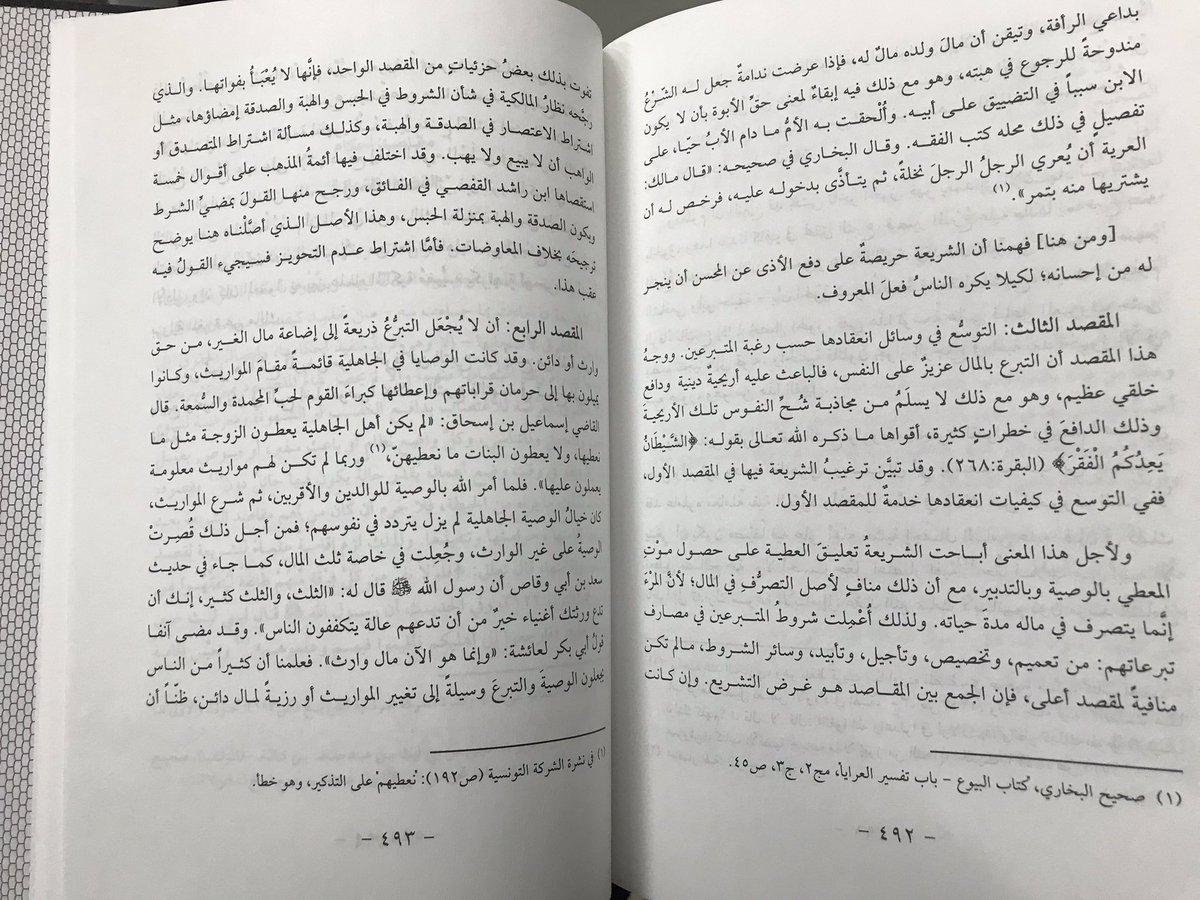 بداعي الرأفة، وتيقن أن مالَ ولده مالٌ له، فإذا عرضت ندامةٌ جعل لـه الشَّرْعُ
مندوحةً للرجوع في هبته، وهو مع ذلك فيه إبقاءٌ لمعنى حقِّ الأبوة بأن لا يكون
الابن سبباً في التضييق على أبيـه. وأُلْحقت بـه الأمُّ مـا دام الأبُ حيّـا، علـى
تفصيلٍ في ذلك محله كتب الفقـه. وقـال البخـاري في صحيحـه: «قـال مـالك:
العرية أن يُعري الرجلُ الرجلَ نخلةً، ثم يتـأذَّى بدخولـه عليـه، فرخـص لـه أن
يشتريها منه بتمر». (١)
[ومن هنا] فهمنا أن الشريعة حريصةٌ على دفع الأذى عن المحسن أن ينجر
له من إحسانه؛ لكيلا يكره الناسُ فعلَ المعروف.
المقصد الثالث: التوسُّع في وسائل انعقادها حسب رغبة المتبرعين. ووجهُ
هذا المقصد أن التبرع بالمال عزيزٌ على النفس، فالباعث عليه أريحيةٌ دينية ودافع
خلقي عظيم، وهو مع ذلك لا يسلَمُ مـن مجاذبة شُـحِّ النفوس تلـك الأريحيةَ
وذلك الدافعَ في خطراتٍ كثيرة، أقواها ما ذكره الله تعالى بقوله: ﴿الشَّيْطَانُ
يَعِدُكُمُ الْفَقْرَ﴾ (البقرة:٢٦٨). وقد تبيَّن ترغيبُ الشريعة فيها في المقصد الأول،
ففي التوسع في كيفيات انعقادها خدمةٌ للمقصد الأول.
ولأجل هذا المعنى أبـاحت الشريعةُ تعليـقَ العطية علـى حصـول مـوْتِ
المعطي بالوصية وبالتدبير، مع أن ذلك منافٍ لأصل التصرُّف في المال؛ لأنَّ المرْءَ
إنَّما يتصرف في ماله مدةَ حياته. ولذلك أُعْمِلت شروطُ المتبـرعين في مصـارف
تبرعاتهم: من تعميم، وتخصيص، وتأجيل، وتأبيد، وسائر الشروط، مـالم تكن
منافيةً لمقصد أعلى، فإن الجمع بين المقـاصد هـو غـرض التشريع. وإن كـانت
(١) صحيح البخاري، كتاب البيوع - باب تفسير العرايا، مج٢، ج٣، ص٤٥.
- ٤٩٢ -
تفوت بذلك بعضُ جزئياتٍ من المقصد الواحد، فإنَّها لا يُعْبَأُ بفواتها. والـذي
رجَّحه نظارُ المالكية في شأن الشروط في الحبس والهبة والصدقة إمضاؤها، مثـل
اشتراط الاعتصار في الصدقـة والهبـة، وكذلـك مسـألة اشتراط المتصـدق أو
الواهب أن لا يبيع ولا يهب. وقد اختلف فيها أئمةُ المذهب على أقوال خمسة
استقصاها ابن راشد القفصي في الفـائق، ورجـح منهـا القـولَ بمضـيِّ الشـرط
ويكون الصدقة والهبة بمنزلة الحبس، وهذا الأصـل الـذي أصَّلْنـاه هنـا يوضـح
ترجيحَه بخلاف المعاوضات. فأمَّا اشتراط عـدم التحويـز فسيجيء القـولُ فيـه
عقب هذا.
المقصد الرابع: أن لا يُجْعَل التبرُّعُ ذريعةً إلى إضاعة مال الغير، مـن حـق
وارث أو دائن. وقد كانت الوصايا في الجاهلية قائمـةً مقـامَ المواريـث، وكـانوا
يميلون بها إلى حرمان قراباتهم وإعطائها كبراءَ القوم لحبِّ المحمدة والسُّمعة. قال
القاضي إسماعيل بن إسحاق: «لم يكن أهل الجاهلية يعطـون الزوجـة مثـل مـا
نعطيها، ولا يعطون البنات ما نعطيهنّ،(١) وربمـا لم تكـن لهـم مواريـث معلومـة
يعملون عليها». فلمـا أمـر الله بالوصية للوالديـن والأقربيـن، ثـم شـرع المواريـث،
كان خيالُ الوصية الجاهلية لم يزل يتردد في نفوسهم؛ فمن أجـل ذلـك قُصِـرتْ
الوصيةُ على غير الوارث، وجُعِلت في خاصـة ثلـث المال، كمـا جـاء في حديـث
سعد بن أبي وقاص أن رسول الله ﷺ قال له: «الثلث، والثلث كثـير، إنـك أن
تدع ورثتك أغنياء خيرٌ من أن تدعهم عالة يتكففون الناس». وقـد مضـى آنفـا
قولُ أبي بكر لعائشة: «وإنما هو الآن مال وارث». فعلمنا أن كثيـراً مـن الناس
يجعلون الوصيةَ والتبرعَ وسيلةً إلى تغيير المواريـث أو رزيـة لمـال دائـن، ظنّـاً أن
(١) في نشرة الشركة التونسية (ص١٩٢): "نعطيهم" على التذكير، وهو خطأ.
- ٤٩٣ -